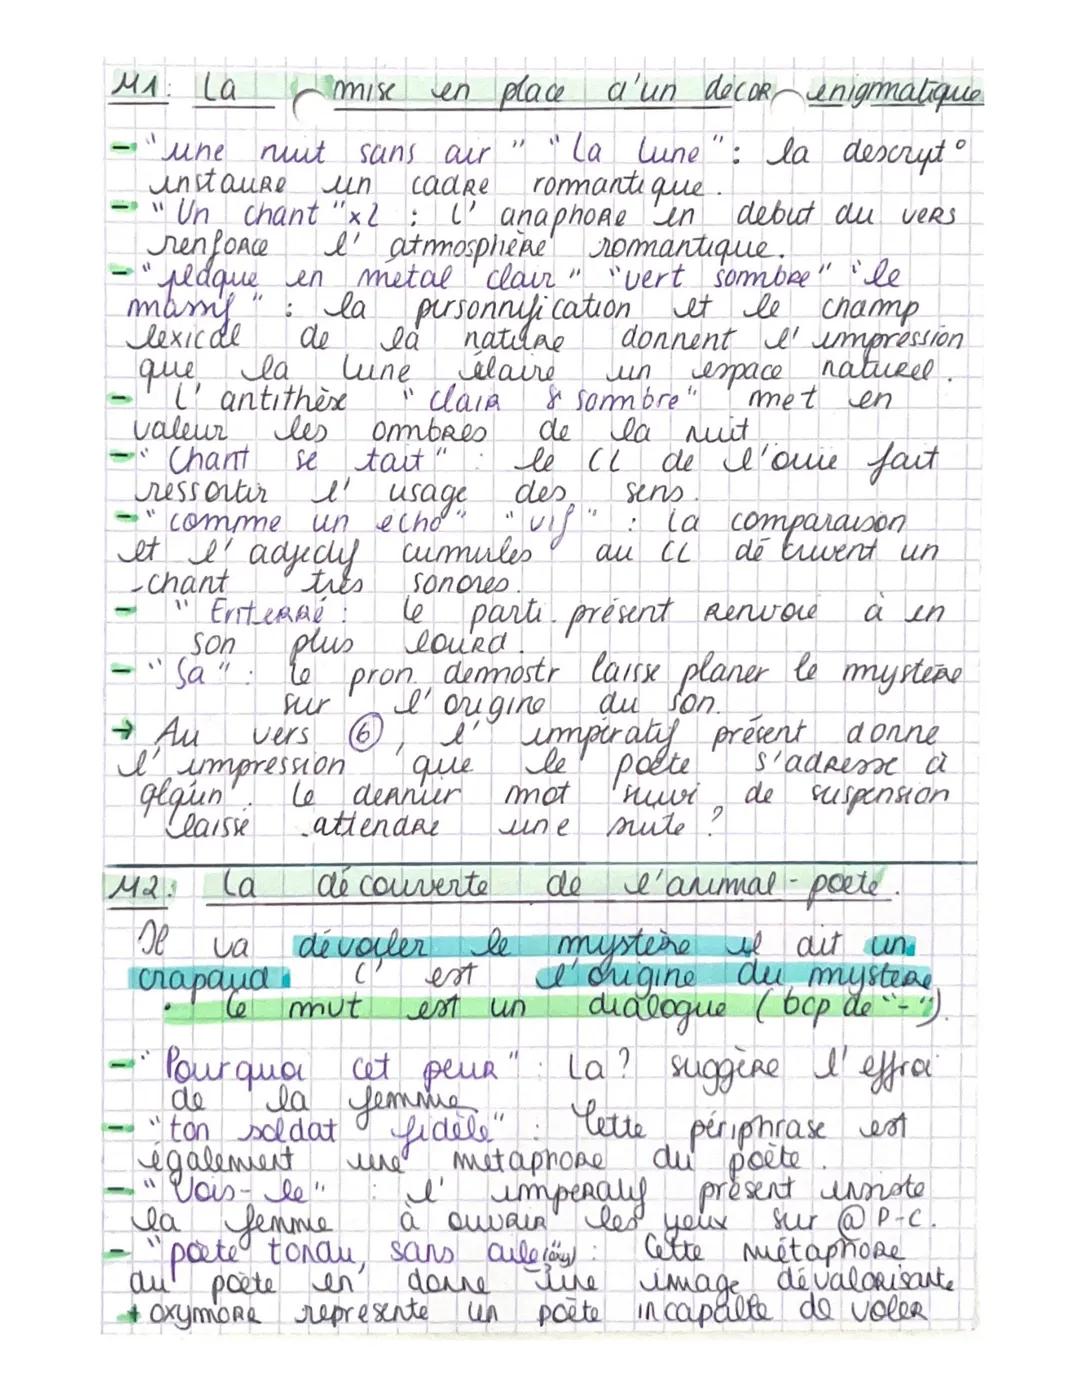 M1: La mise en place d'un décor énigmatique
- "une nuit sans air" "La lune": la descrypt°
instaure un cadre rommantique.
- "Un chant" x2 : l'anaphore en debut du vers
renforce l'atmosphère romantique.
- "plaque en metal clair" "vert sombre" "le
massif" : la personnification et le champ
lexical de la nature donnent l'impression
que la lune élaire un espace naturel.
- L'antithèse "clair & sombre" met en
valeur les ombres de la nuit
- "Chant se tait" : le CL de l'ouïe fait
ressortir l'usage des sens.
- "comme un echo" "vif" : la comparaison
et l'adjectif cummules au CL décrivent un
chant très sonores.
- "Enterré : le parti. présent renvoie à en
son plus lourd.
- "ça" : le pron. demostr laisse planer le mystère
sur l'origine du son.
→ Au vers 6, l'impératif présent donne
l'impression que le poète s'adresse à
qlqun. Le dernier mot suivi de suspension
laisse attendre une suite ?
M2: La découverte de l'animal-poète.
Il va dévoiler le mystère il dit un
crapaud C'est l'origine du mystère
• Le mvt est un dialogue (bcp de "-").
- "Pourquoi cet peur" : La ? suggère l'effroi
de la femme
- "ton soldat fidèle" : Cette périphrase est
également une métaphore du poète.
- "Vois-le" : l'imperatif présent invite
la femme à ouvrir les yeux sur @ P-C.
- "poète tondu, sans aile" : Cette métaphore
du poète en donne une image dévalorisante
+ oxymore représente un poète incapable de voler